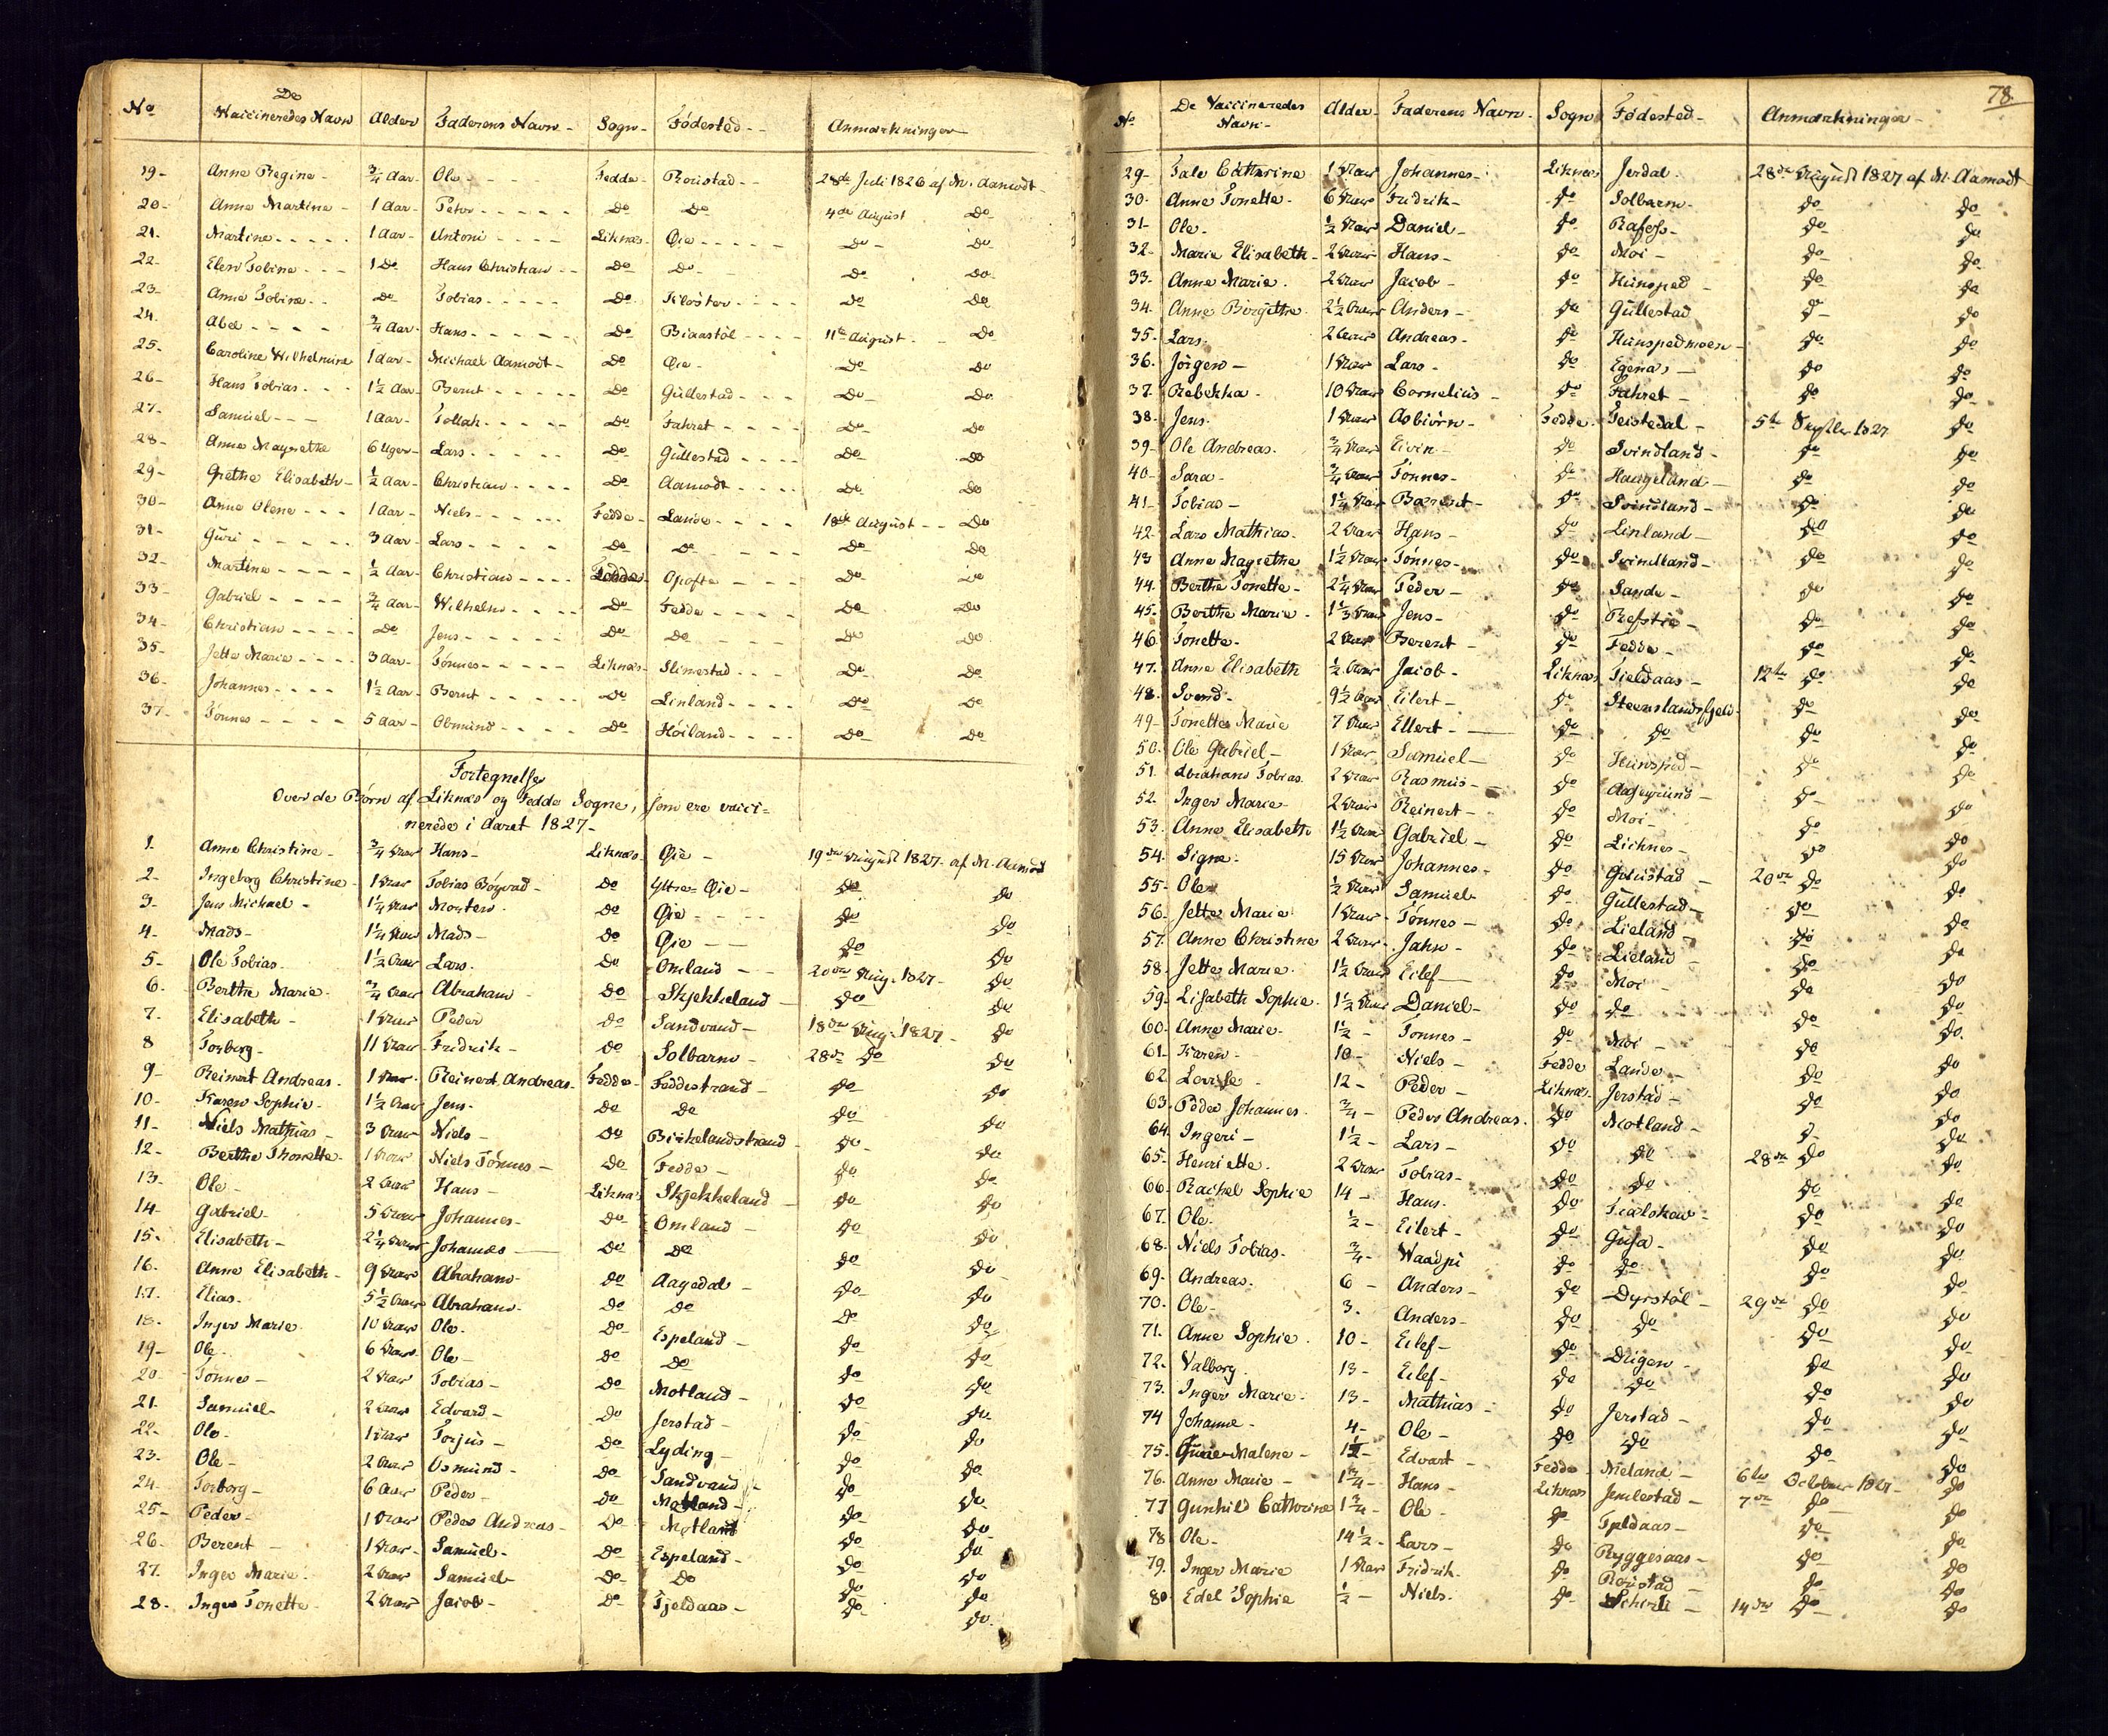 No De Vaccineredes Navn Alder Faderens Navn - Sogn - Fødested - - Anmærkninger
19 - Anne Regine - 3/4 Aar - Ole - - - - Fedde - Røiestad - - 28de Juli 1826 af M. Aamodt -
20 - Anne Martine - 1 Aar - Peter - - - - - Do Do 4de August Do
21 - Martine - - - - - 1 Aar - Antoni - - - - Liknæs - Øie - - - - - Do - Do
22 - Elen Tobine - - - 1 Do Hans Christian - - Do Do - Do Do
23 - Anne Tobine - - Do Tobias - - - - - Do Kloster - - - - Do Do
24 - Abel - - - - 3/4 Aar - Hans - - - - - Do Biaastöl - - - - 11te August - Do
25 - Caroline Wilhelmine 1 Aar - Michael Aamodt - Do Øie - Do Do
26 - Hans Tobias - - - 1 1/2 Aar - Bernt - - - - - Do Gullestad - - - Do Do
27 - Samuel - - - 1 Aar - Tollak - - - - - Do Fahret - - - - Do Do
28 - Anne Magrethe 6 Uger - Lars - - - - - Do Gullestad - - - - Do Do
29 - Grethe Elisabeth - 1/2 Aar - Christian - - - - Do Aamodt - - - - Do Do
30 - Anne Olene - - - 1 Aar - Niels - - - - - Fedde - Lande - - - - 18de August - - Do
31 - Guri - - - - - 3 Aar - Lars - - - - - Do Do - - - - Do Do
32 - Martine - - - - 1/2 Aar - Christian - - - - Fedde - Opofte - - - Do Do
33 - Gabriel - - - - 3/4 Aar - Wilhelm - - - - Do Fedde - - - - Do Do
34 - Christian - - - - Do Jens - - - - - Do Do - - - - Do Do
35 - Jette Marie - - - - 3 Aar - Tönnes - - - - - Liknæs - Slimestad - - - Do Do
36 - Johannes - - - - 1 1/2 Aar - Bernt - - - - - Do Linland - - - - Do Do
37 - Tönnes - - - - 5 Aar - Obmund - - - - Do Höiland - - - - Do Do
Fortegnelse
Over de Börn af Liknæs og Fedde Sogne, som ere vacci=
nerede i Aaret 1827 -
1 - Anne Christine - 3/4 Aar Hans - Liknæs - Øie - 19de August 1827 - af M. Aamod
2 - Ingeborg Christine - 1 Aar Tobias Bögvad - do Yttre = Øie - do do
3 - Jens Michael - 1 1/4 Aar Morten - do Øie - - - - do do
4 - Mads - 1 1/4 Aar Mads - do Øie - - do do
5 - Ole Tobias - 1 1/2 Aar Lars - do Omland - - 20de Aug. 1827 - do
6 - Berthe Marie - 3/4 Aar Abraham - do Skjekkeland - do do
7 - Elisabeth - 1 Aar Peder do Sandvand - 18de Aug. 1827 - do
8 Torborg - 11 Aar Fredrik - do Solbarm - 28de do do
9 - Reinert Andreas - 1 Aar - Reinert Andreas - Fedde - Feddestrand - do do
10 - Karen Sophie - 1 1/2 Aar Jens - do do do do
11 - Niels Mathias - 3 Aar Niels - do Birkelandstrand - do do
12 - Berthe Thonette - 1 Aar Niels Tönnes - do Fedde - do do
13 - Ole - 2 Aar Hans - Liknæs Skjekkeland - do do
14 - Gabriel - 5 Aar Johannes - do Omland - do do
15 - Elisabeth - 2 1/4 Aar Johannes - do do do do
16 - Anne Elisabeth - 9 Aar Abraham - do Aagedal - do do
17 - Elias - 5 1/2 Aar Abraham - do do do do
18 - Inger Marie - 10 Aar Ole - do Espeland - do do
19 - Ole - 6 Aar Ole - do do do do
20 - Tönnes - 2 Aar Tobias - do Motland - do do
21 - Samuel - 2 Aar Edvard - do Jerstad - do do
22 - Ole - 1 Aar Torjus - do Lyding - do do
23 - Ole - 2 Aar Osmund - do Sandvand - do do
24 - Torborg - 6 Aar Peder - do Motland - do do
25 - Peder - 1 Aar Peder Andreas - do Motland do do
26 - Berent - 1 Aar - Samuel - do Espeland - do do
27 - Inger Marie - 2 Aar Samuel - do do do do
28 - Inger Tonette - 2 Aar Jacob - do Fjeldaas - do do
78
No De Vaccineredes Navn - Alder - Faderens Navn - Sogn Fødested - Anmærkninger -
29 - Tale Cathrine 1 Aar Johannes - Liknæs Jerdal - 28de August 1827 af M. Aamodt
30 - Anne Tonette - 6 Aar Fridrik - do Solbarm - do do
31 - Ole - 1/2 Aar Daniel - do Rafoss - do do
32 - Marie Elisabeth - 2 Aar Hans - do Moi - do do
33 - Anne Marie - 2 Aar Jacob - do Hunsped - do do
34 - Anne Birgithe - 2 1/2 Aar Anders - do Gullestad do do
35 - Lars - 2 Aar Andreas - do Hunspedmoen - do do
36 - Jörgen - 1 Aar Lars - do Egenæs - do do
37 - Rebekka - 10 Aar Cornelius - do Fahret - do do
38 - Jens - 1 Aar Asbiörn - Fedde - Teistedal - 5te Septbr 1827 do
39 - Ole Andreas - 3/4 Aar Eivin - do Svindland - do do
40 - Sara - 3/4 Aar Tönnes - do Haugeland - do do
41 - Tobias - 1 1/4 Aar Berent - do Svindland - do do
42 - Lars Mathias - 2 Aar Hans - do Linland - do do
43 Anne Magrethe 1 1/2 Aar Tönnes - do Svindland - do do
44 - Berthe Tonette - 2 1/4 Aar Peder - do Sande - do do
45 - Berthe Marie - 1 1/3 Aar Jens - do Refstie - do do
46 - Tonette - 2 Aar Berent - do Fedde - do do
47 - Anne Elisabeth 1/2 Aar Jacob - Liknæs Fieldaas - 12te do do
48 - Svend - 9 1/2 Aar Eilert - do Steenslandsfjeld - do do
49 - Tonette Marie 7 Aar Ellert - do do do do
50 - Ole Gabriel - 1 Aar Samuel - do Hunsped - do do
51 - Abraham Tobias - 2 Aar Rasmus - do do do
52 - Inger Marie 2 Aar Reinert - do Moi - do do
53 - Anne Elisabeth 1 1/2 Aar Gabriel - do Lichnes - do do
54 - Signe - 15 Aar Johannes - do 20de do do
55 - Ole - 1/2 Aar Samuel - do Gullestad - do do
56 - Jette Marie 1 Aar - Tönnes - do Lieland - do do
57 - Anne Christine 2 Aar - Jahn - do Lieland - do do
58 - Jette Marie 1 1/2 Aar Eilef - do Moi - do do
59 - Lisabeth Sophie - 1 1/2 Aar Daniel - do do do do
60 - Anne Marie - 1 1/2 - Tönnes - do Moi - do do
61 - Karen - 10 - Niels - Fedde Lande - do do
62 Lovise - 12 - Peder - Liknæs - Jerstad - do do
63 - Peder Johannes - 3/4 - Peder Andreas - do Motland - do do
64 - Ingeri - 1 1/2 - Lars - do do 28de do do
65 - Henriette - 2 Aar Tobias - do do do do
66 - Rachel Sophie 14 - Hans - do do do
67 - Ole - 1/2 - Eilert - do Gusa - do do
68 - Niels Tobias - 3/4 - do do do do
69 - Andreas - 6 - Anders - do Dyrstöl - 29de do do
70 - Ole - 3 - Anders - do do do do
71 - Anne Sophie - 10 - Eilef - do Dligen - do do
72 - Valborg - 13 - Eilef - do do do do
73 - Inger Marie - 13 - Mathias - do Jerstad - do do
74 Johanne - 4 - Ole - do do do do
75 - Malene - Edvart - Fedde - Neland - 6te October 1827 - do
76 - Anne Marie - 1 3/4 - Hans - Liknæs 7de do do
77 Gunhild Cathrine 1 3/4 - Ole - do Fjeldaas - do do
78 Ole - 14 1/2 - Lars - do Ryggesaas - do do
79 - Inger Marie 1 Aar Fridrik - do Röiestad - do do
80 Edel Sophie 1/2 - Niels - do 14de do do